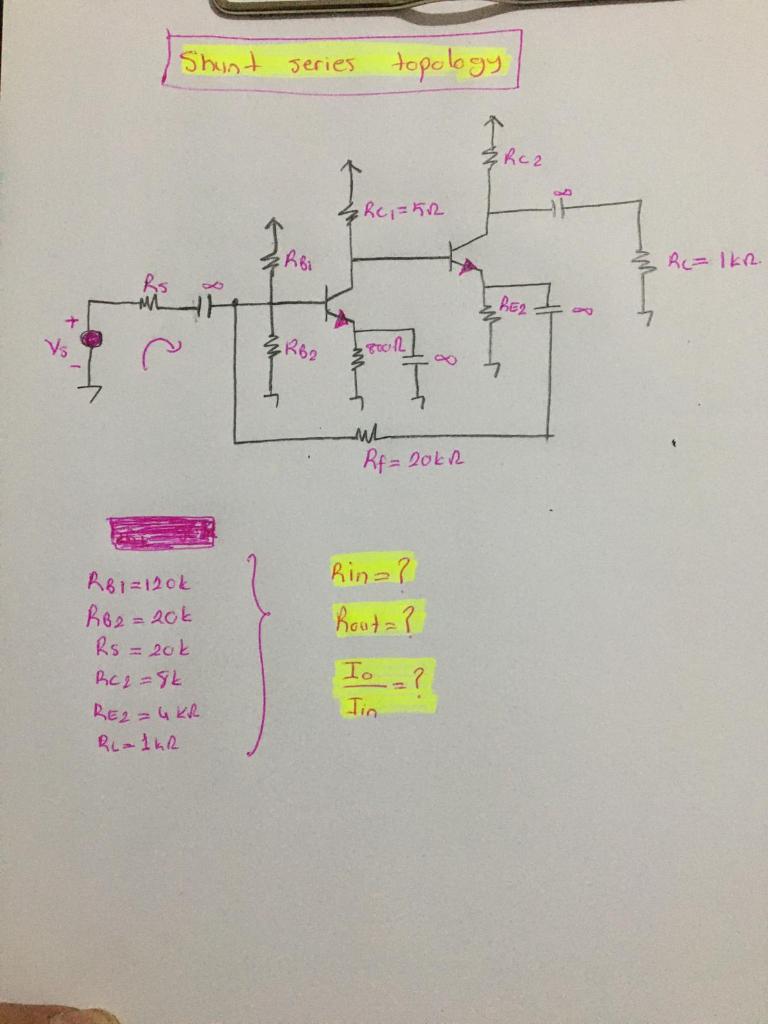 Shunt series topology
RC2
∞
RC1 = 5Ω
RC = 1kΩ
RB1
Rs
∞
RE2
∞
+
Vs
-
RB2
800Ω
∞
Rf = 20kΩ
RB1 = 120k
RB2 = 20k
RS = 20k
RC2 = 8k
RE2 = 4 kΩ
RL = 1kΩ
Rin = ?
Rout = ?
Io
= ?
Iin